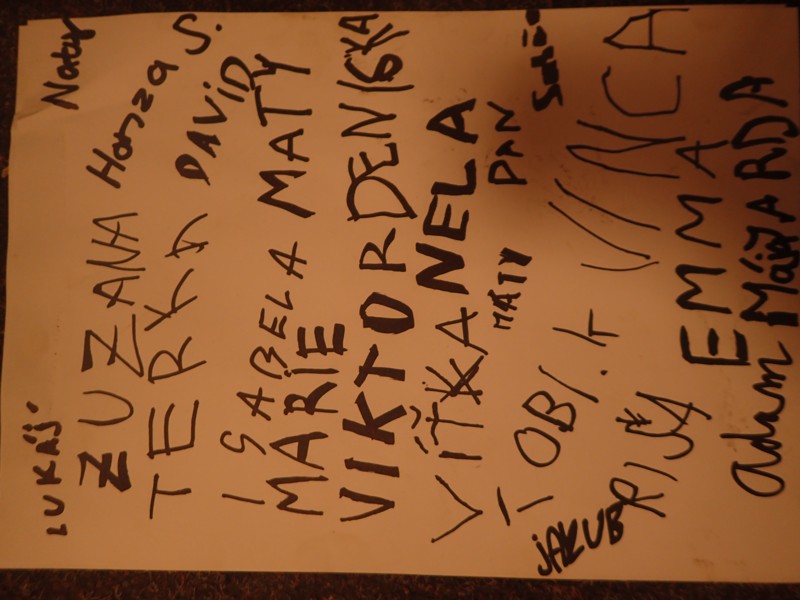 LUKÁŠ Naty
ZUZANA Honza S.
TERKA DAVID
ISABELA MATY
MARIE
VIKTOR DENISKA
VÍŤKA NELA
MATY DAN
TOBI.K VINCA
JAKUB RIŠA EMMA
Adam MÁJA ARDA